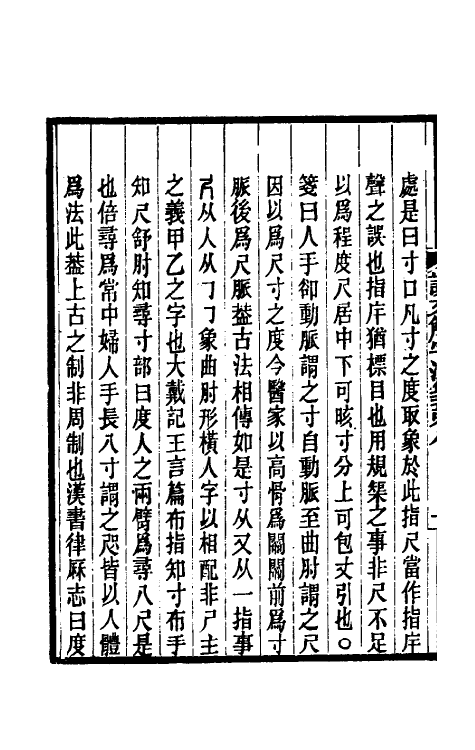 處是曰寸口凡寸之度取象於此指尺當作指㡿
聲之誤也指㡿猶標目也用規榘之事非尺不足
以爲程度尺居中下可晐寸分上可包丈引也○
箋曰人手卻動脈謂之寸自動脈至曲肘謂之尺
因以爲尺寸之度今醫家以高骨爲關關前爲寸
脈後爲尺脈葢古法相傳如是寸从又从一指事
尺从人从㇆㇆象曲肘形橫人字以相配非尸主
之義甲乙之字也大戴記王言篇布指知寸布手
知尺舒肘知尋寸部曰度人之兩臂爲尋八尺是
也倍尋爲常中婦人手長八寸謂之咫皆以人體
爲法此葢上古之制非周制也漢書律厤志曰度